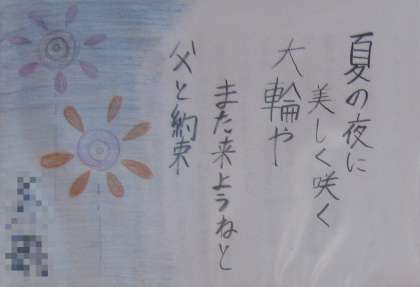 夏の夜に
美しく咲く
大輪や
また来ようねと
父と約束